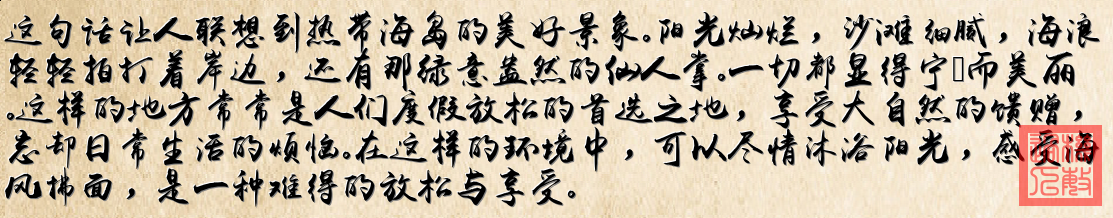 这句话让人联想到热带海岛的美好景象。阳光灿烂，沙滩细腻，海浪
轻轻拍打着岸边，还有那绿意盎然的仙人掌。一切都显得宁而美丽
。这样的地方常常是人们度假放松的首选之地，享受大自然的馈赠，
忘却日常生活的烦恼。在这样的环境中，可以尽情沐浴阳光，感受海
风拂面，是一种难得的放松与享受。